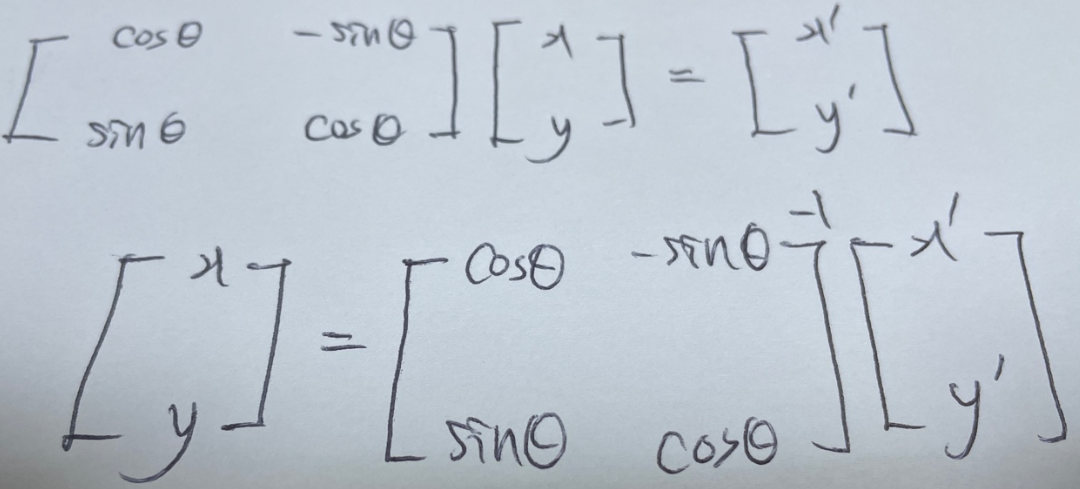 [cosθ -sinθ; sinθ cosθ] [x; y] = [x'; y']
[x; y] = [cosθ -sinθ; sinθ cosθ]⁻¹ [x'; y']